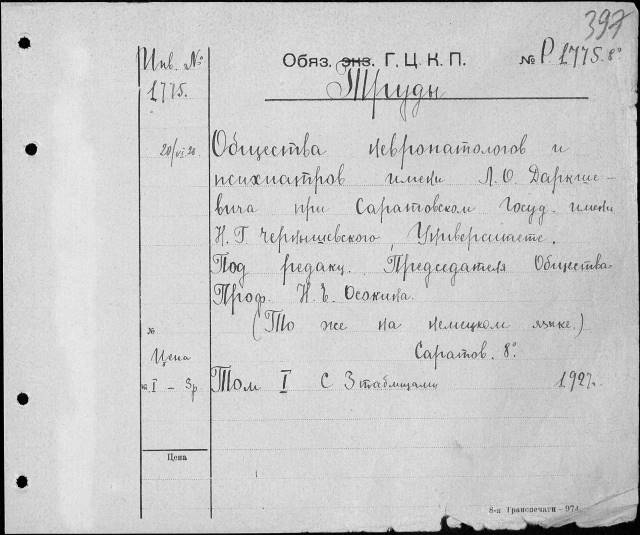 397
Инв. №
1775.
Обяз. экз. Г. Ц. К. П.
№ Р 1775. 8°
Труды
20/VI 28.
Общества невропатологов и
психиатров имени Л. О. Даркше-
вича при Саратовском Госуд. имени
Н. Г. Чернышевского, Университете.
Под редакц. Председателя Общества
Проф. Н. Е. Осокина.
(То же на немецком языке.)
№
Цена
Саратов. 8°.
I – 3р
Том I С 3 таблицами 1927.
Цена
8-я Транспечати – 974